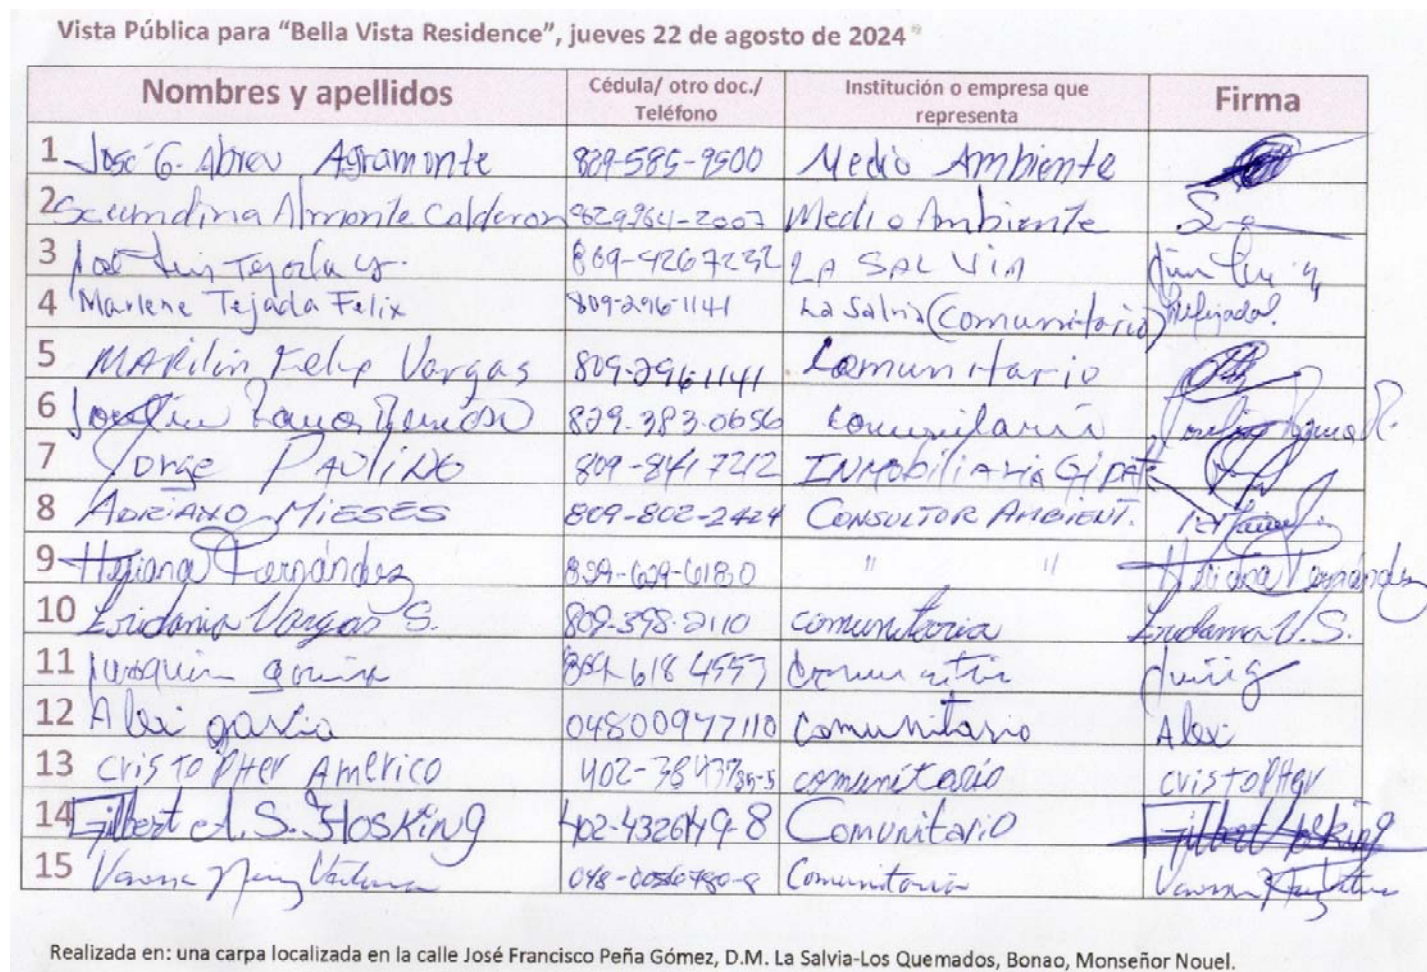 Vista Pública para “Bella Vista Residence”, jueves 22 de agosto de 2024
Nombres y apellidos Cédula/ otro doc./ Teléfono Institución o empresa que representa Firma
1 José G. Abreu Agramonte 829-585-9500 Medio Ambiente
2 Secundina Almonte Calderon 829964-2007 Medio Ambiente
3 José Luis Tejada 809-4267232 LA SALVIA
4 Marlene Tejada Felix 809-296-1141 La Salvia (Comunitario)
5 MARilin Felix Vargas 809-2961141 Comunitario
6 829-383-0656
7 Jorge PAULINO 809-8417212 INMobiliaria
8 ADRIANO MIESES 809-802-2424 CONSULTOR AMBIENT.
9 Fernández 829-629-6180 " " Fernández
10 Eridania Vargas S. 809-398-2110 comunitaria Eridania V.S.
11 Joaquin 618 4553
12 Alex garcia 04800977110 Comunitario Alex
13 cristopHer Americo 402- comunitario cristopHer
14 Gilbert A. S. HosKing 402-4326149-8 Comunitario Gilbert Hosking
15 048- Comunitaria
Realizada en: una carpa localizada en la calle José Francisco Peña Gómez, D.M. La Salvia-Los Quemados, Bonao, Monseñor Nouel.